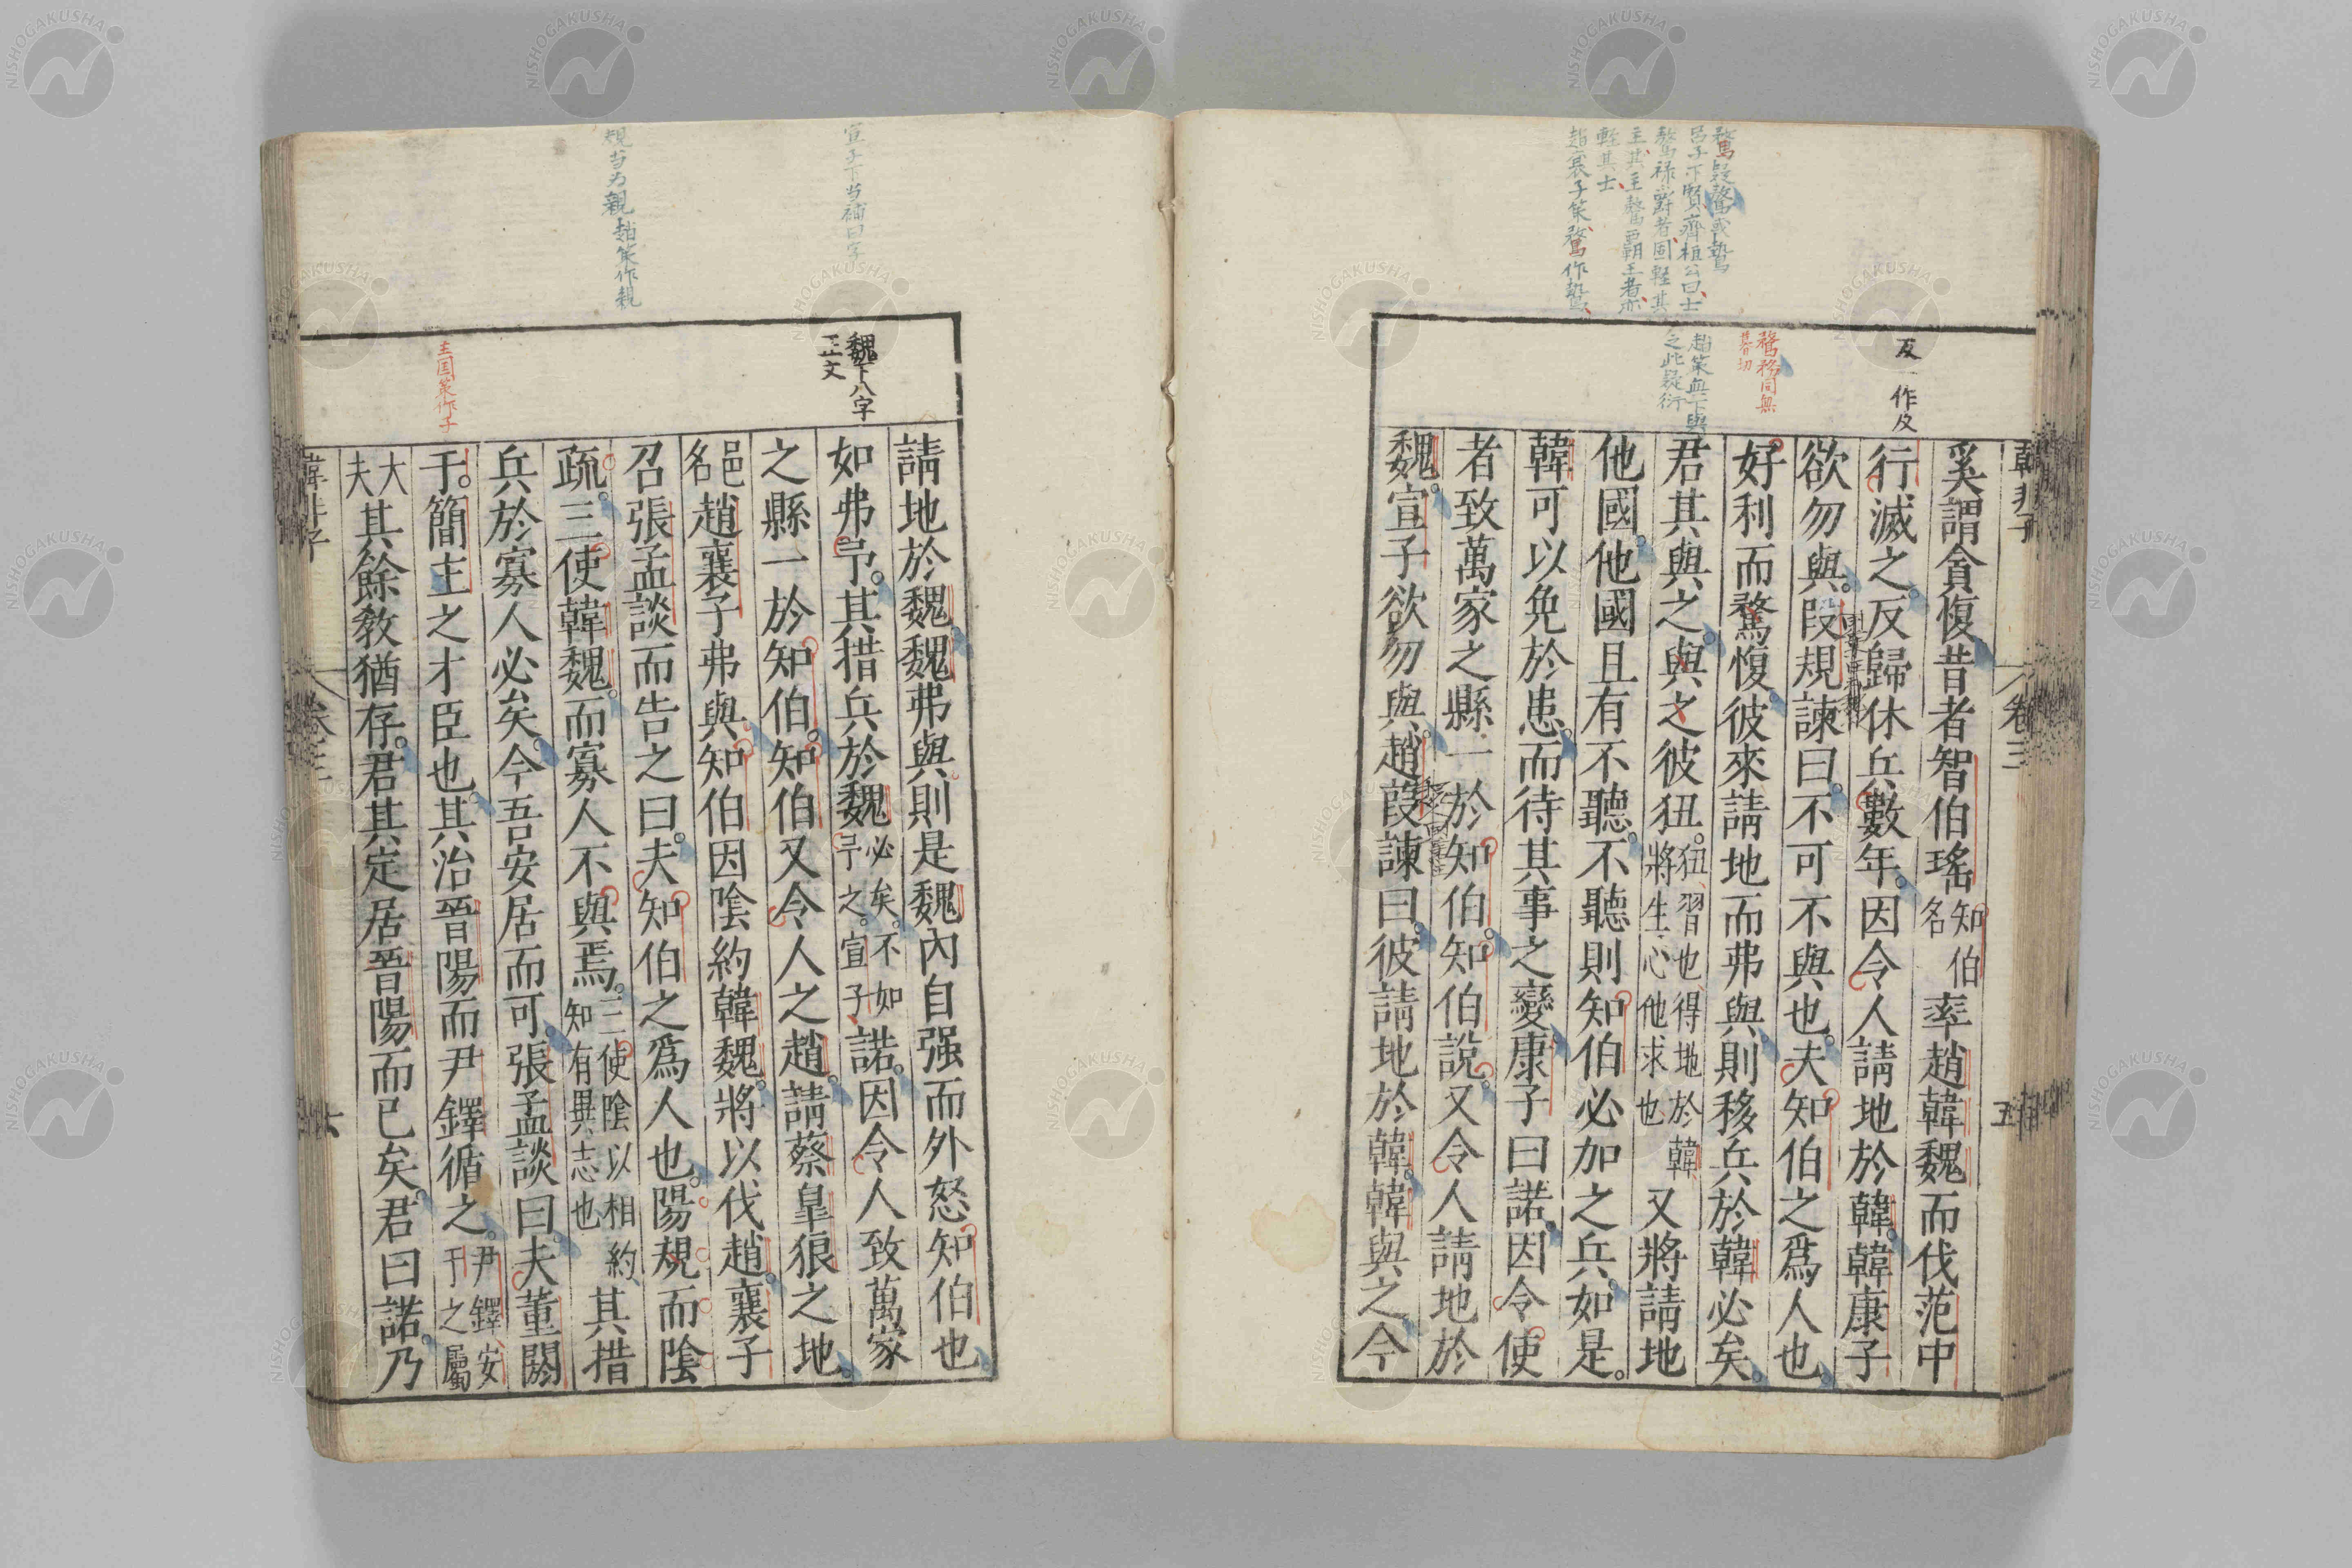 鶩疑驁或鷔
呂子下賢齊桓公曰士
驁祿爵者固輕其
主其主驁霸王者亦
輕其士
趙襄子策鶩作鷙
反一作及
鶩務同無
暮切
趙策無下與
之此疑衍
韓非子 卷三 五
奚謂貪愎昔者智伯瑤知伯名率趙韓魏而伐范中
行滅之。反歸休兵數年。因令人請地於韓。韓康子
欲勿與。段規諫曰。不可不與也。夫知伯之爲人也
好利而鶩愎彼來請地而弗與。則移兵於韓必矣。
君其與之。與之彼狃。狃習也得地於韓將生心他求也又將請地
他國。他國且有不聽。不聽則知伯必加之兵。如是。
韓可以免於患。而待其事之變康子曰諾。因令使
者致萬家之縣一於知伯。知伯說。又令人請地於
魏。宣子欲勿與。趙葭諫曰。彼請地於韓。韓與之今
宣子下当補曰字
規当为親趙策作親
魏下八字
正文
主国策作子
請地於魏。魏弗與則是魏內自强而外怒知伯也。
如弗予。其措兵於魏必矣。不如予之。宣子諾。因令人致萬家
之縣一於知伯。知伯又令人之趙。請蔡皐狼之地。
邑名趙襄子弗與。知伯因陰約韓魏。將以伐趙。襄子
召張孟談而告之曰。夫知伯之爲人也。陽規而陰
疏。三使韓魏。而寡人不與焉。三使陰以相約知有異志也其措
兵於寡人必矣。今吾安居而可。張孟談曰。夫董閼
于。簡主之才臣也。其治晉陽而尹鐸循之。尹鐸安于之屬
大夫其餘敎猶存。君其定居晉陽而已矣。君曰諾。乃
韓非子 卷三 六
NISHOGAKUSHA